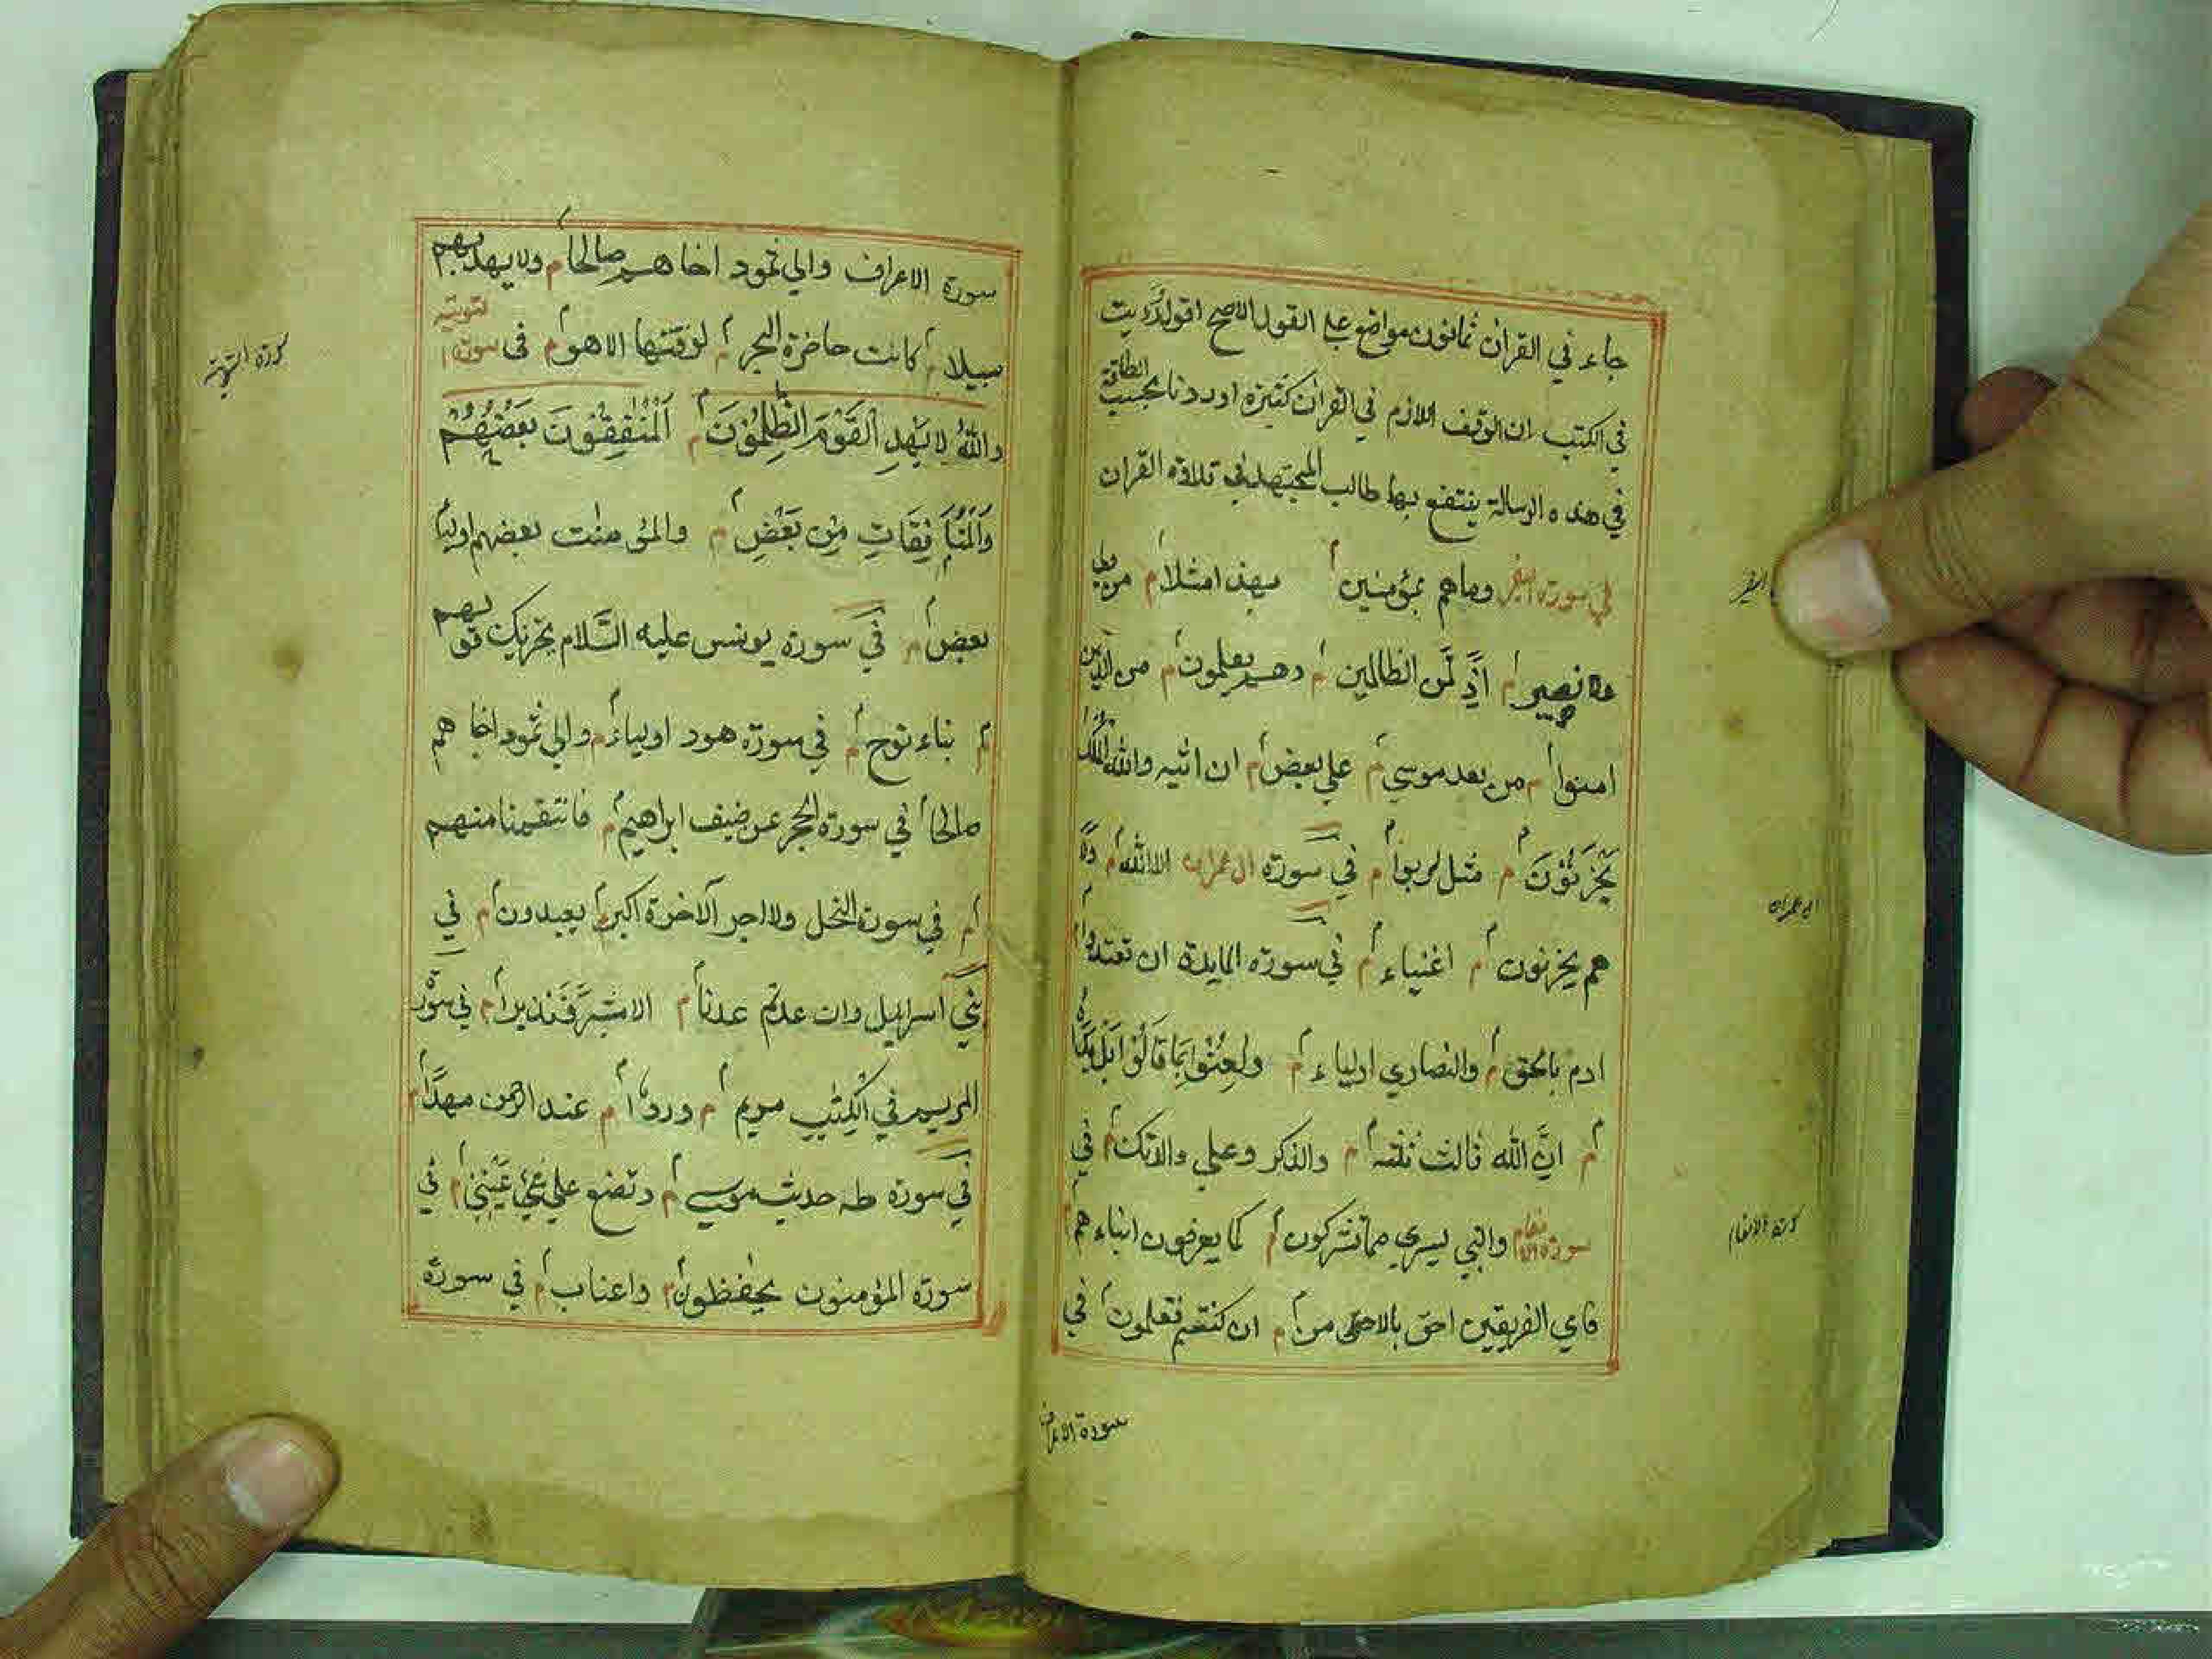 جاء في القران ثمانون مواضع علي القول الاصح اقول رديت
في الكتب ان الوقف اللازم في القران كثيرة اوردنا بحسب الطاقة
في هذه الرسالة ينتفع بها طالب المجتهد في تلاوة القران
في سورة البقر وما هم بمؤمنين م بهذا مثلا م من ولي
ولا نصير م اذ لمن الظالمين م وهم يعلمون م من الذين
امنوا م من بعد موسي م علي بعض م ان اتيه والله الملك
يحزنون م مثل الربوا م في سورة ال عمران الا الله م ولا
هم يحزنون م اغنياء م في سورة المايدة ان تعتدوا م
ادم بالحق م والنصاري اولياء م ولعنوا بما قالوا بل يداه
م ان الله ثالث ثلثه م والذكر وعلي والدتك م في
سورة الانعام والنبي بسري مما تشركون م كما يعرفون ابناءهم م
فاي الفريقين احق بالامن م ان كنتم تعلمون م في
سورة الاعراف
ال عمران
سورة الانعام
سورة الاعراف والي ثمود اخاهم صالحا م ولا يهديهم
سبيلا م كانت حاضرة البحر م لوقتها الا هو م في سورة التوبة
والله لا يهد القوم الظلمون م المنفقون بعضهم
والمنافقات من بعض م والمؤمنت بعضهم اولياء
بعض م في سورة يونس عليه السلام يحزنك قولهم
م نباء نوح م في سورة هود اولياء م والي ثمود اخاهم
صالحا م في سورة الحجر عن ضيف ابراهيم م فانتقمنا منهم
م في سورة النحل ولا اجر الاخرة اكبر م يعبدون م في
بني اسرايل وان عدتم عدنا م الا مبشر فنذيرا م في سورة
المريم في الكتب مريم م وردا م عند الرحمن عهدا م
في سورة طه حديث موسي م وتضع علي عيني م في
سورة المؤمنون يحفظون م واعناب م في سورة
سورة التوبة